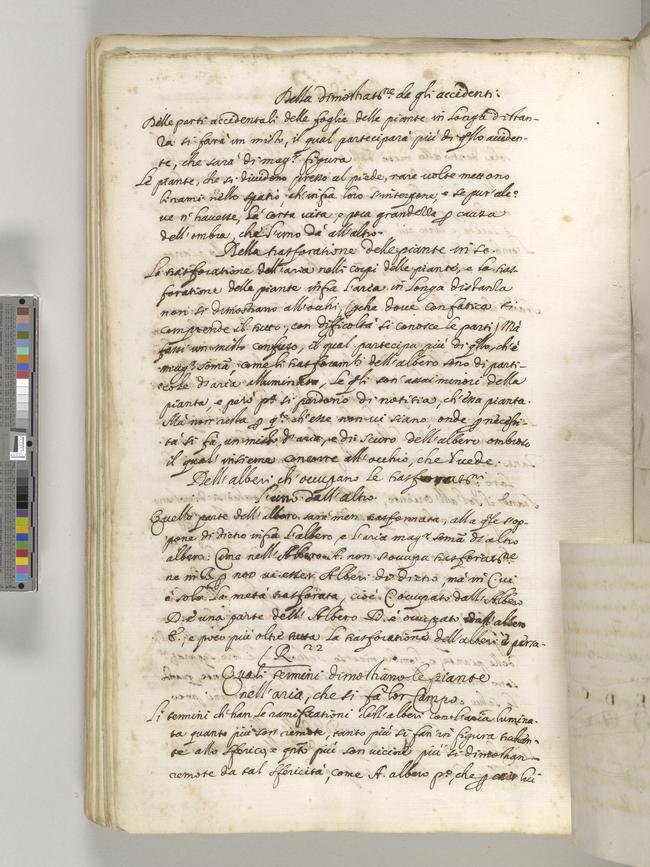 Della dimostrat.ne de gli accidenti.
Delle parti accidentali delle foglie delle piante in longa distan-
za si farà un misto, il qual participarà più di q.llo acciden-
te, che sarà di mag.r figura
Le piante, che si dividono presso al piede, rare volte mettono
li rami nello spatio, ch'infra loro s'interpone, e se pur alc.o
ve n'havesse, hà corta vita, e poca grandezza p causa
dell'ombra, che l'uno dà all'altro.
Della trasforatione delle piante in se.
La trasforatione dell'aria nelli corpi delle piante, e la tras-
foratione delle piante infra l'aria in longa distanza
non si dimostrano all'occhi, pche dove con fatica si
comprende il tutto, con difficoltà si conosce le parti, Mà
fassi un misto confuso, il qual partecipa più di q.llo, ch'è
mag.r somma, come li trasforam.ti dell'albero sono di parti-
cole di aria alluminata, Le q.li son assai minori della
pianta, e però p.a si perdono di notitia, ch'essa pianta
Mà non resta p q.to ch'esse non vi siano, onde p necessi-
tà si fà, un misto d'aria, e di scuro dell'albero ombroso
il qual' insieme concorre all'occhio, che 'l vede.
Dell'alberi ch'occupano le trasforat.ni
l'uno dall'altro.
Quella parte dell'albero sarà men trasforata, alla q.le s'op-
pone di dietro infra l'albero, e l'aria mag.r somma di altro
albero: Come nell'Albero A. non s'occupa trasforat.ne
ne in B. p non vi esser Alberi di dietro, ma in C. vi
è solo la metà trasforata, cioè C. occupato dall'Albero
D. è una parte dell'Albero D. è occupato dall'albero
E., e poco più oltre tutta la trasforatione dell'alberi è persa-
Quali termini dimostrano le piante
nell'aria, che si fà lor Campo.
Li termini ch'han le ramificationi dell'alberi con l'aria lumina-
ta quanto più son remote, tanto più si fan' in figura trahen-
te allo sferico, e q.nto più son vicine più si dimostran
remote da tal sfericità, come A. albero p.o, che p lui